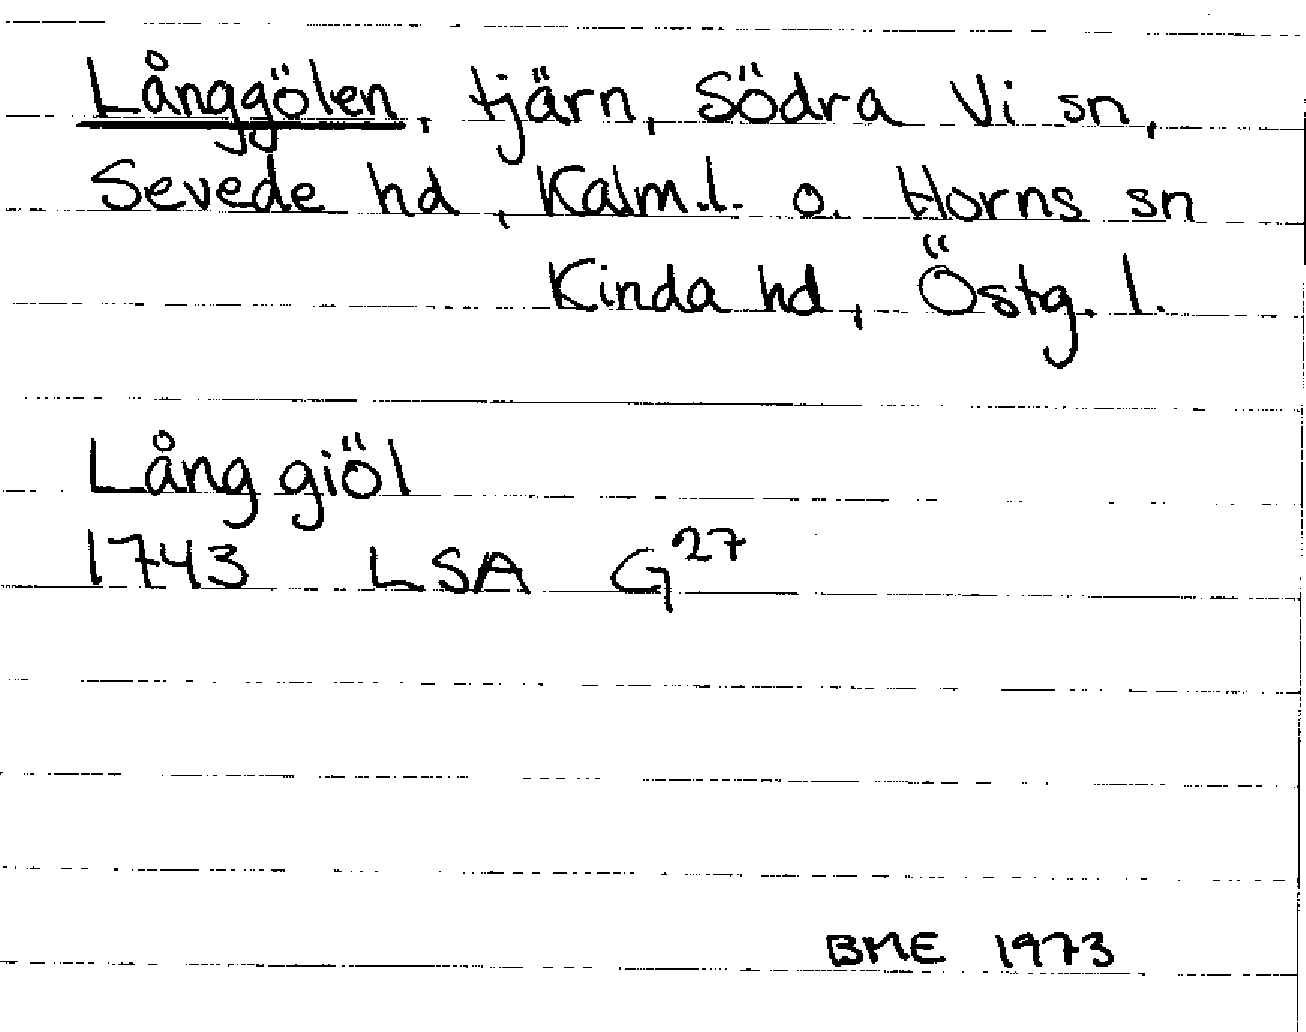 Långgölen, tjärn, Södra Vi sn,
Sevede hd, Kalm.l. o. Horns sn
Kinda hd, Östg. l.
Lång giöl
1743 LSA G27
BME 1973